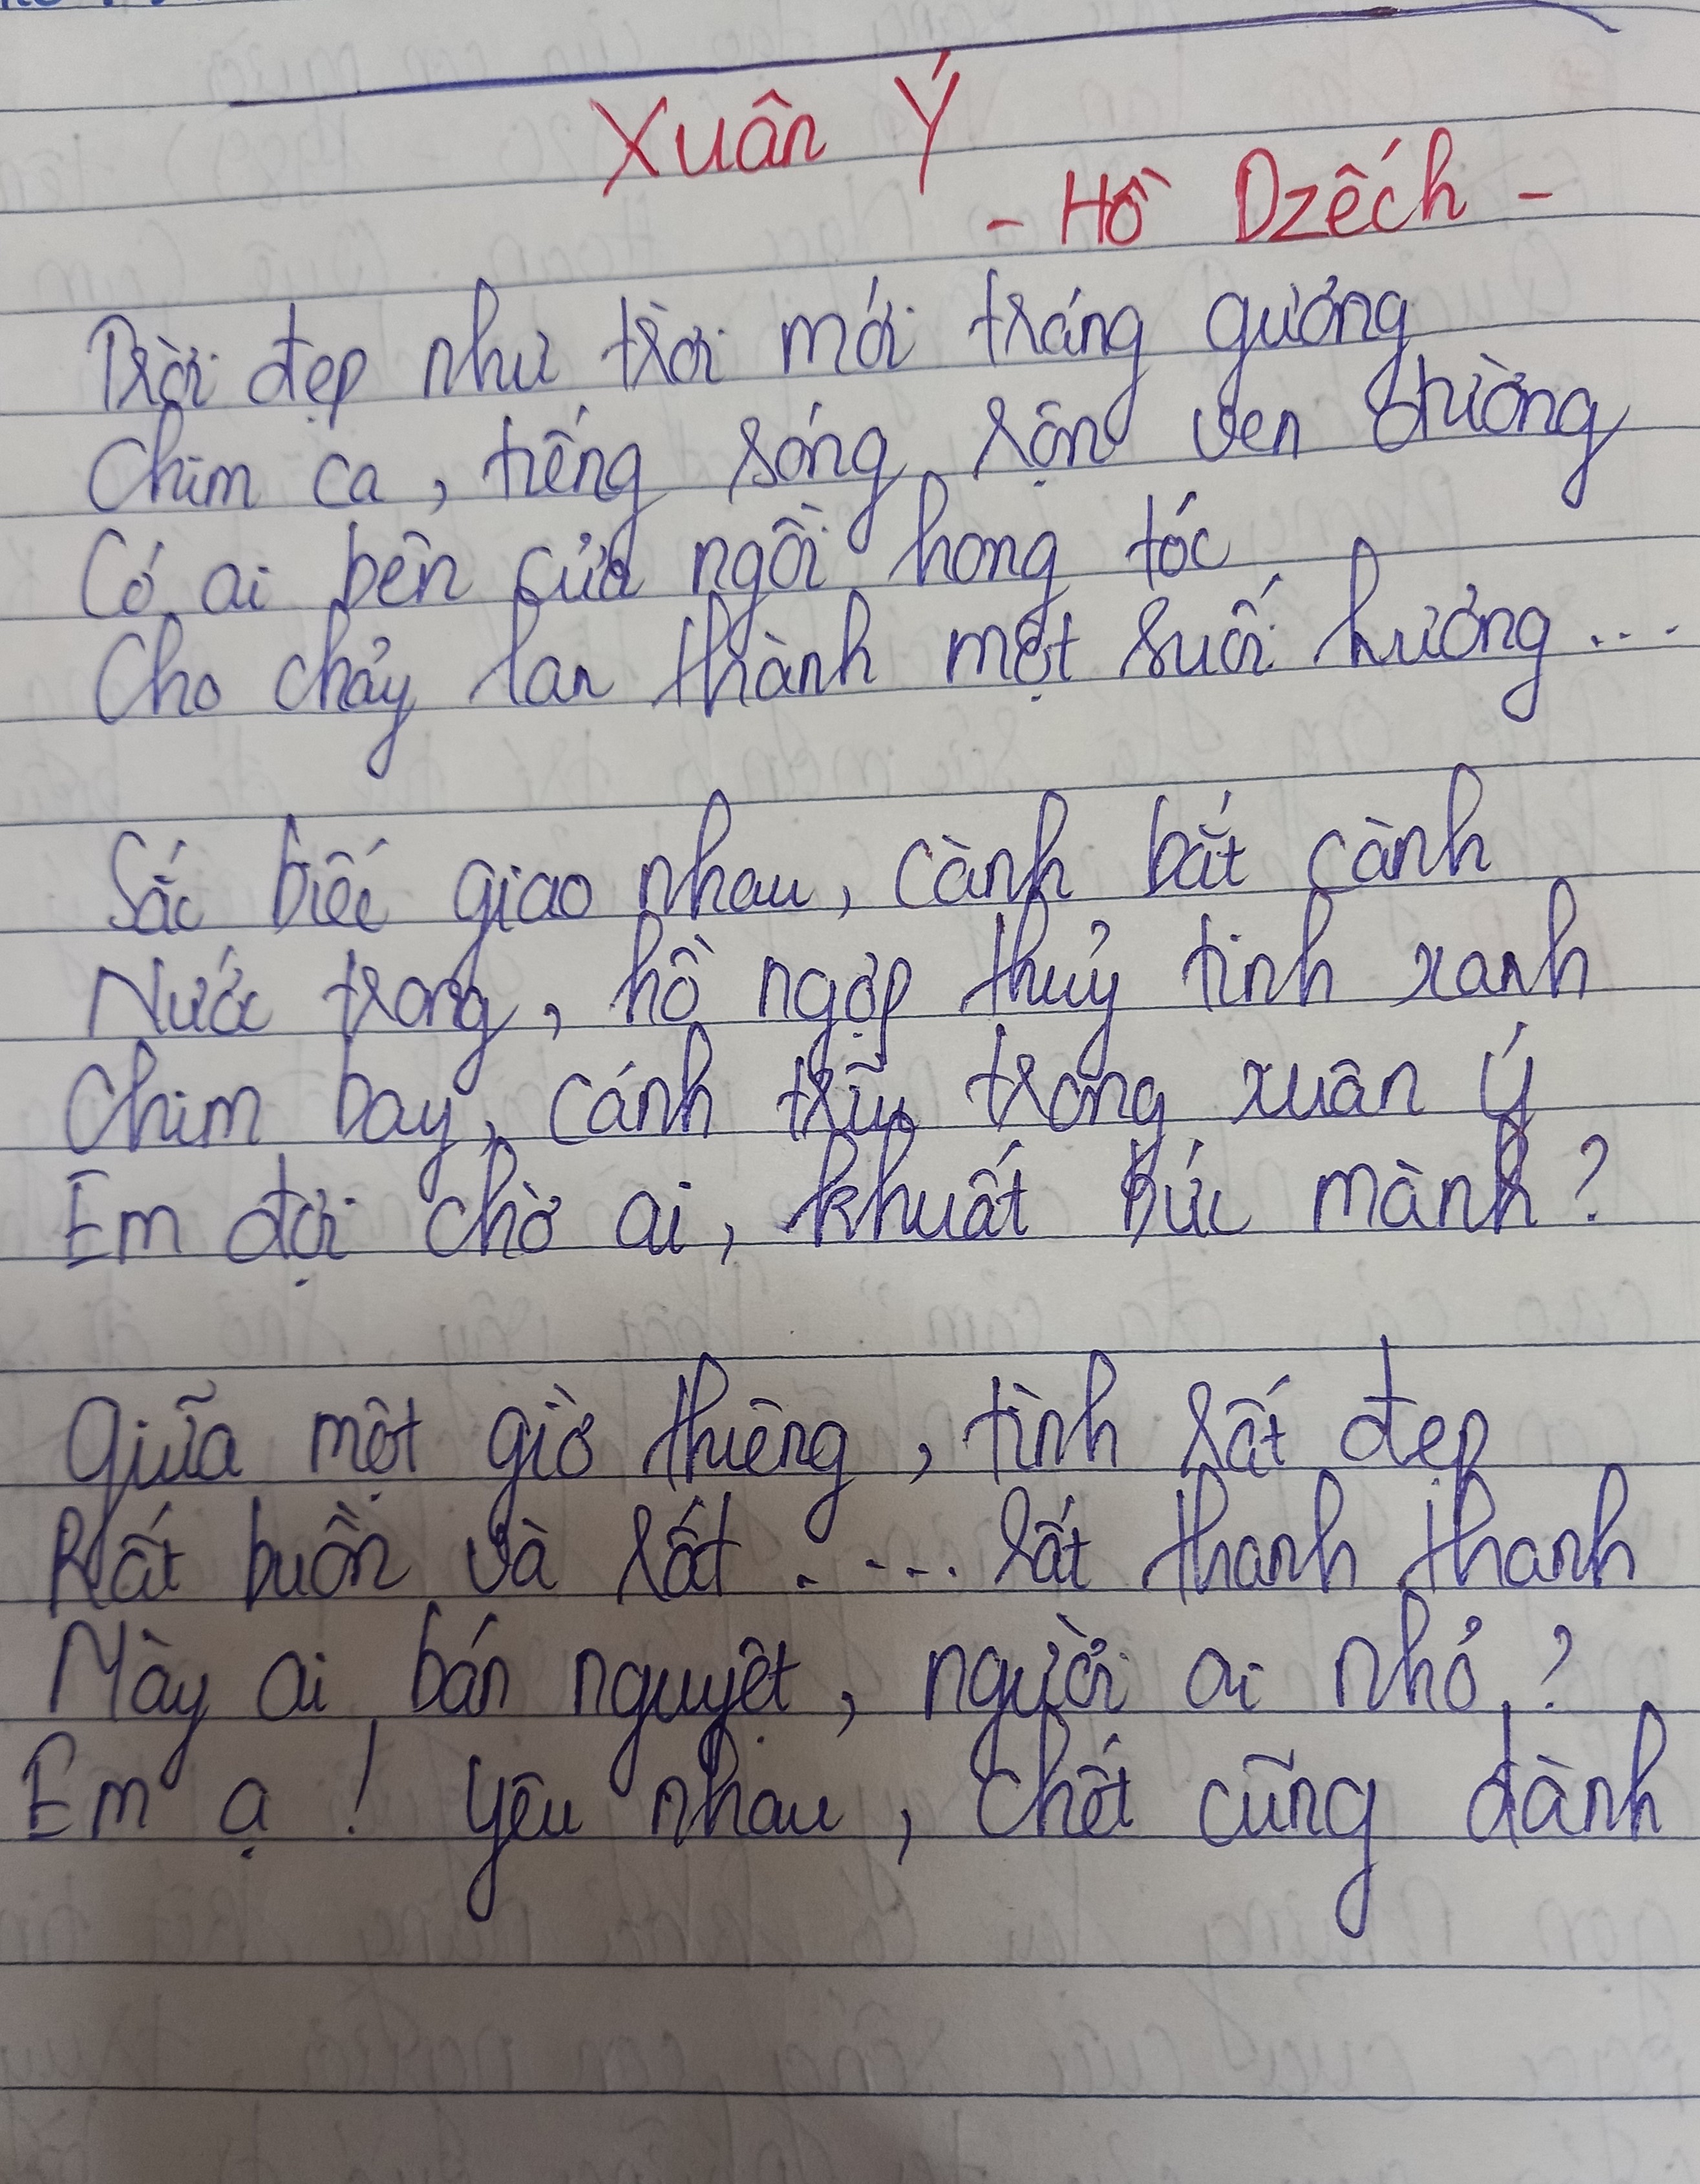 Xuân Ý
- Hồ Dzếch -
Trời đẹp như trời mới tráng gương
Chim ca, tiếng sóng rộn ven tường
Có ai bên cửa ngồi hong tóc
Cho chảy lan thành một suối hương ...
Sắc biếc giao nhau, cành bắt cành
Nước trong, hồ ngợp thuỷ tinh xanh
Chim bay, cánh trĩu trong xuân ý
Em đợi chờ ai, khuất bức mành ?
Giữa một giờ thiêng, tình rất đẹp
Rất buồn và rất .... rất thanh thanh
Mày ai bán nguyệt, người ai nhỏ ?
Em ạ ! yêu nhau, chết cũng đành